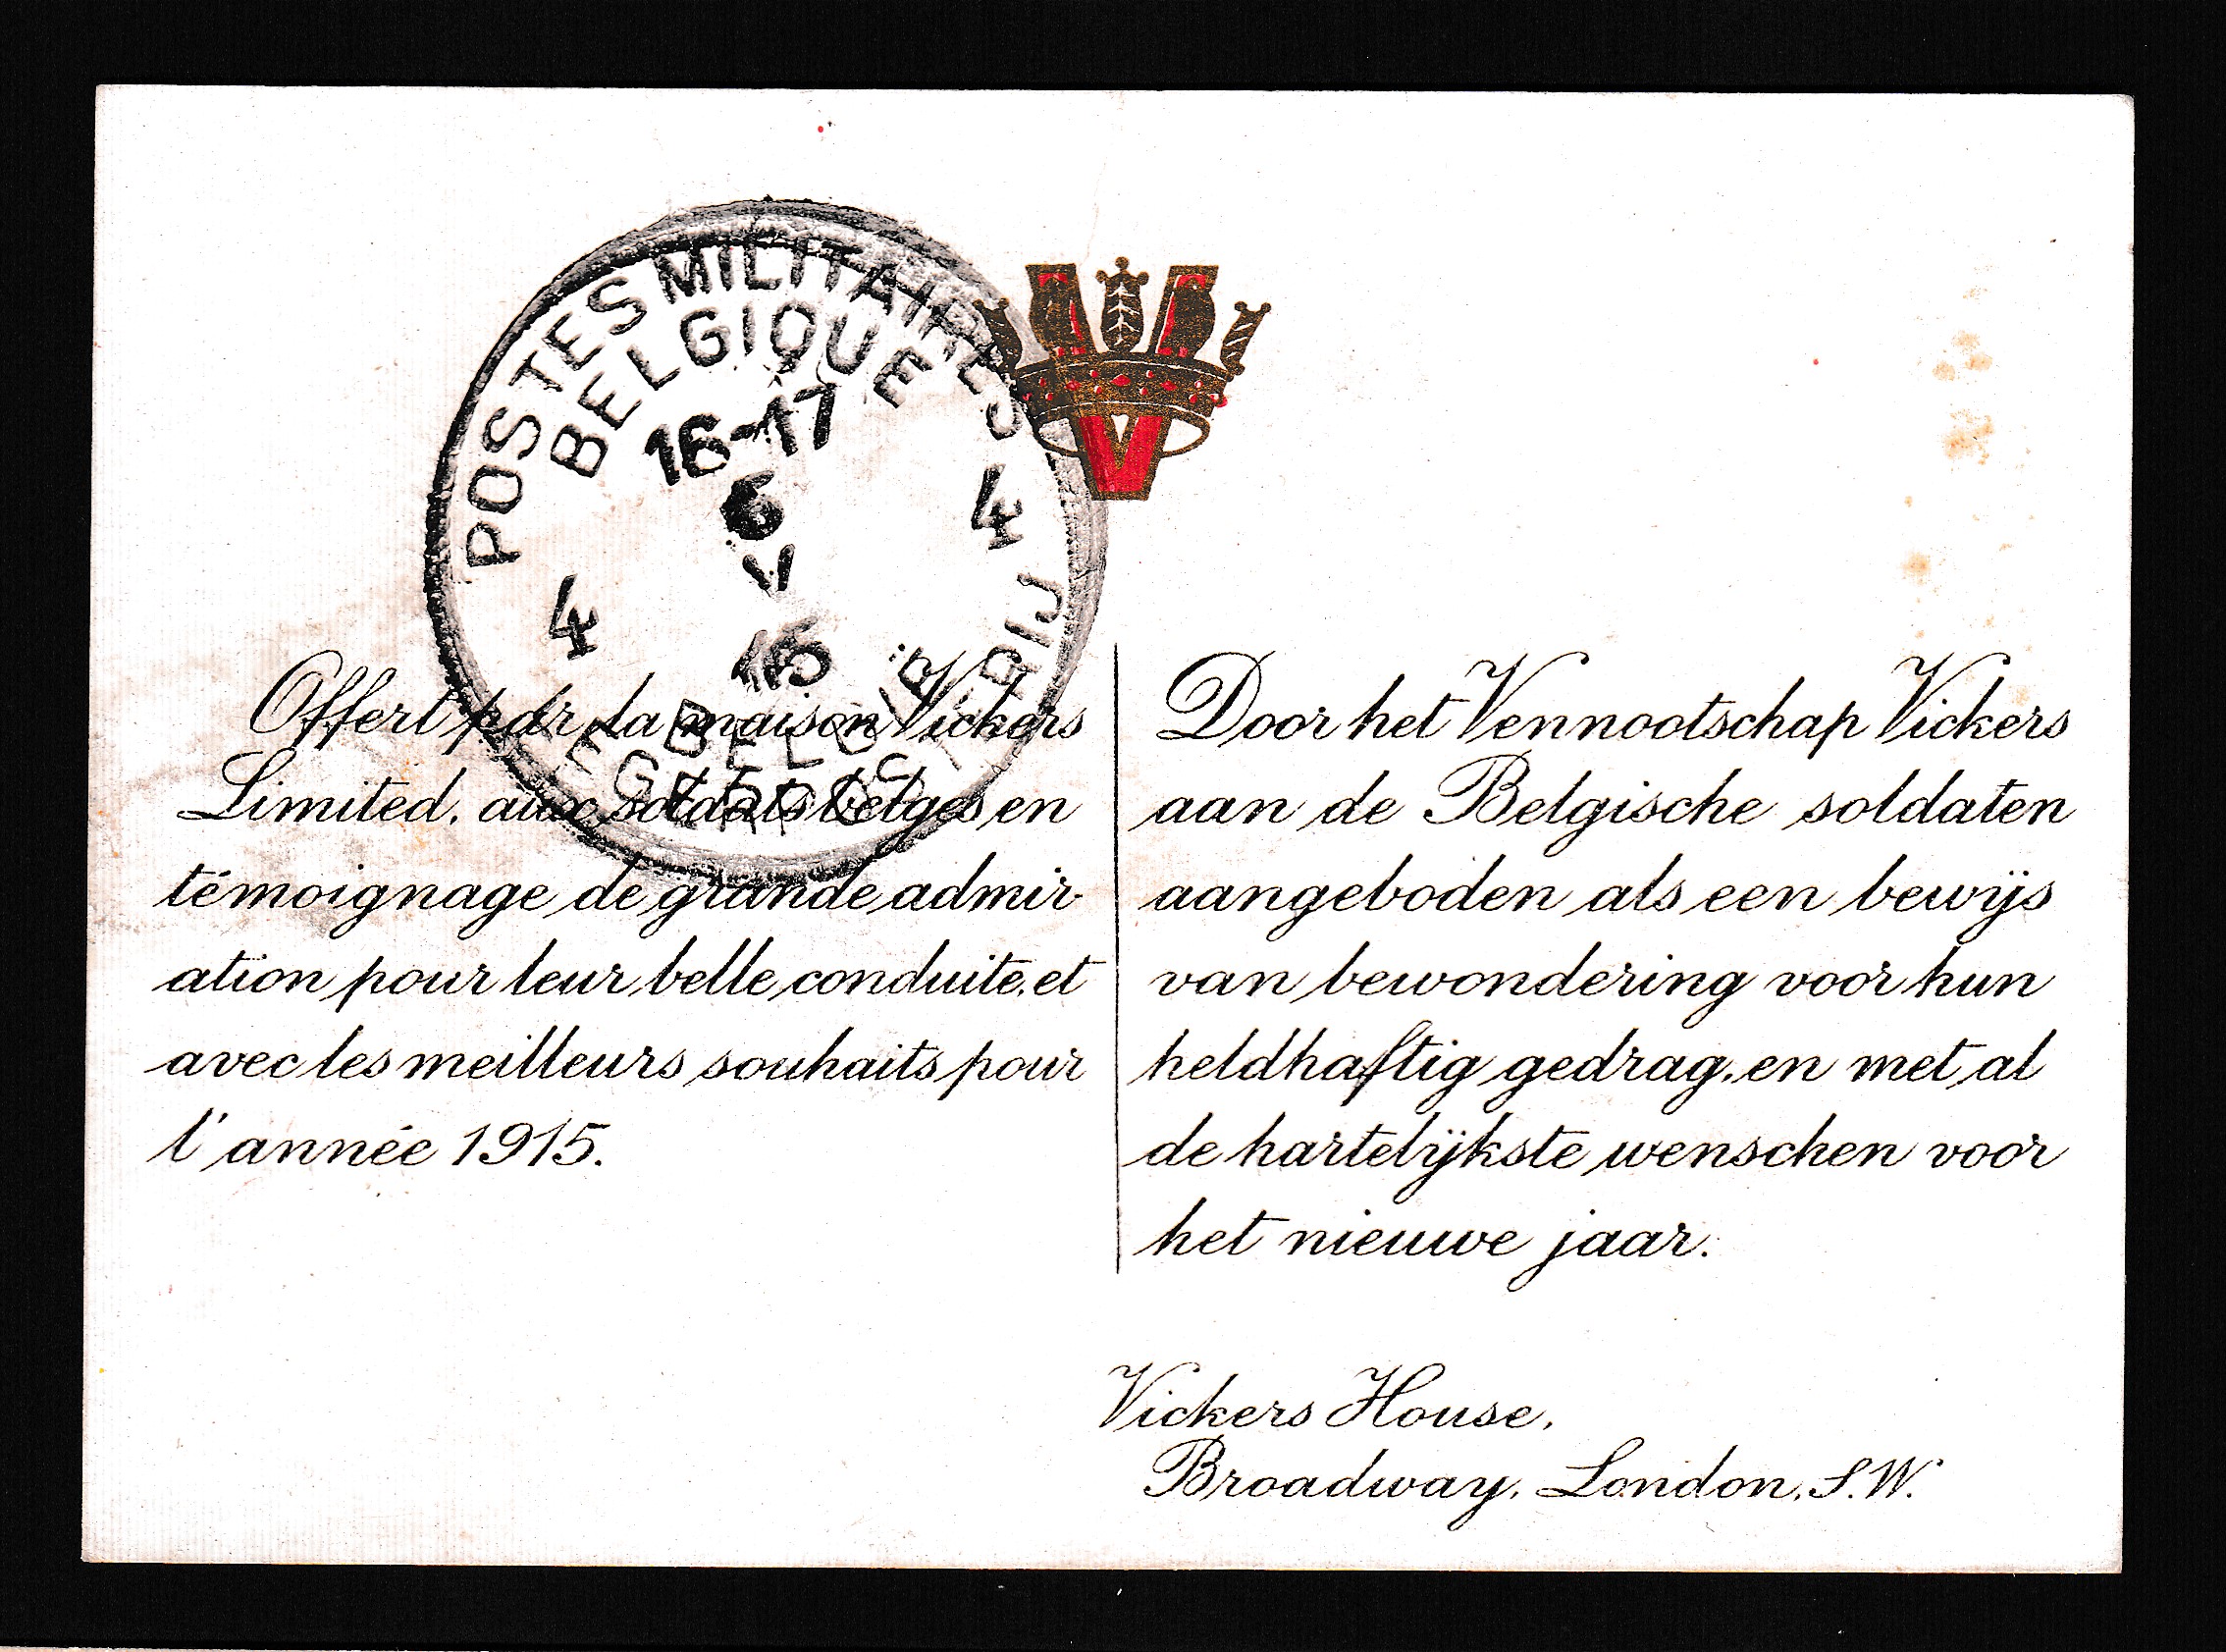 POSTES MILITAIRES
BELGIQUE
16-17
6
V
15
4 4
BELGIË
LEGERPOSTERIJ
V
Offert par la maison Vickers
Limited, aux soldats belges en
témoignage de grande admir-
ation pour leur belle conduite, et
avec les meilleurs souhaits pour
l'année 1915.
Door het Vennootschap Vickers
aan de Belgische soldaten
aangeboden als een bewijs
van bewondering voor hun
heldhaftig gedrag, en met al
de hartelijkste wenschen voor
het nieuwe jaar.
Vickers House,
Broadway, London, S.W.